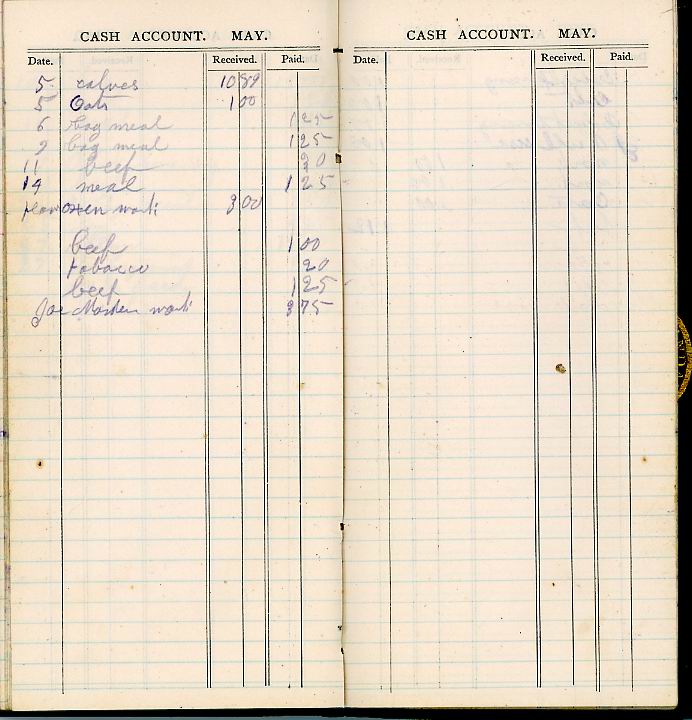 CASH ACCOUNT. MAY.
Date. Received. Paid.
5 calves 10 89
5 Oats 1 00
6 bag meal 1 25
9 bag meal 1 25
11 beef 90
14 meal 1 25
oxen work 3 00
beef 1 00
tobacco 20
beef 1 25
Joe work 3 75
CASH ACCOUNT. MAY.
Date. Received. Paid.